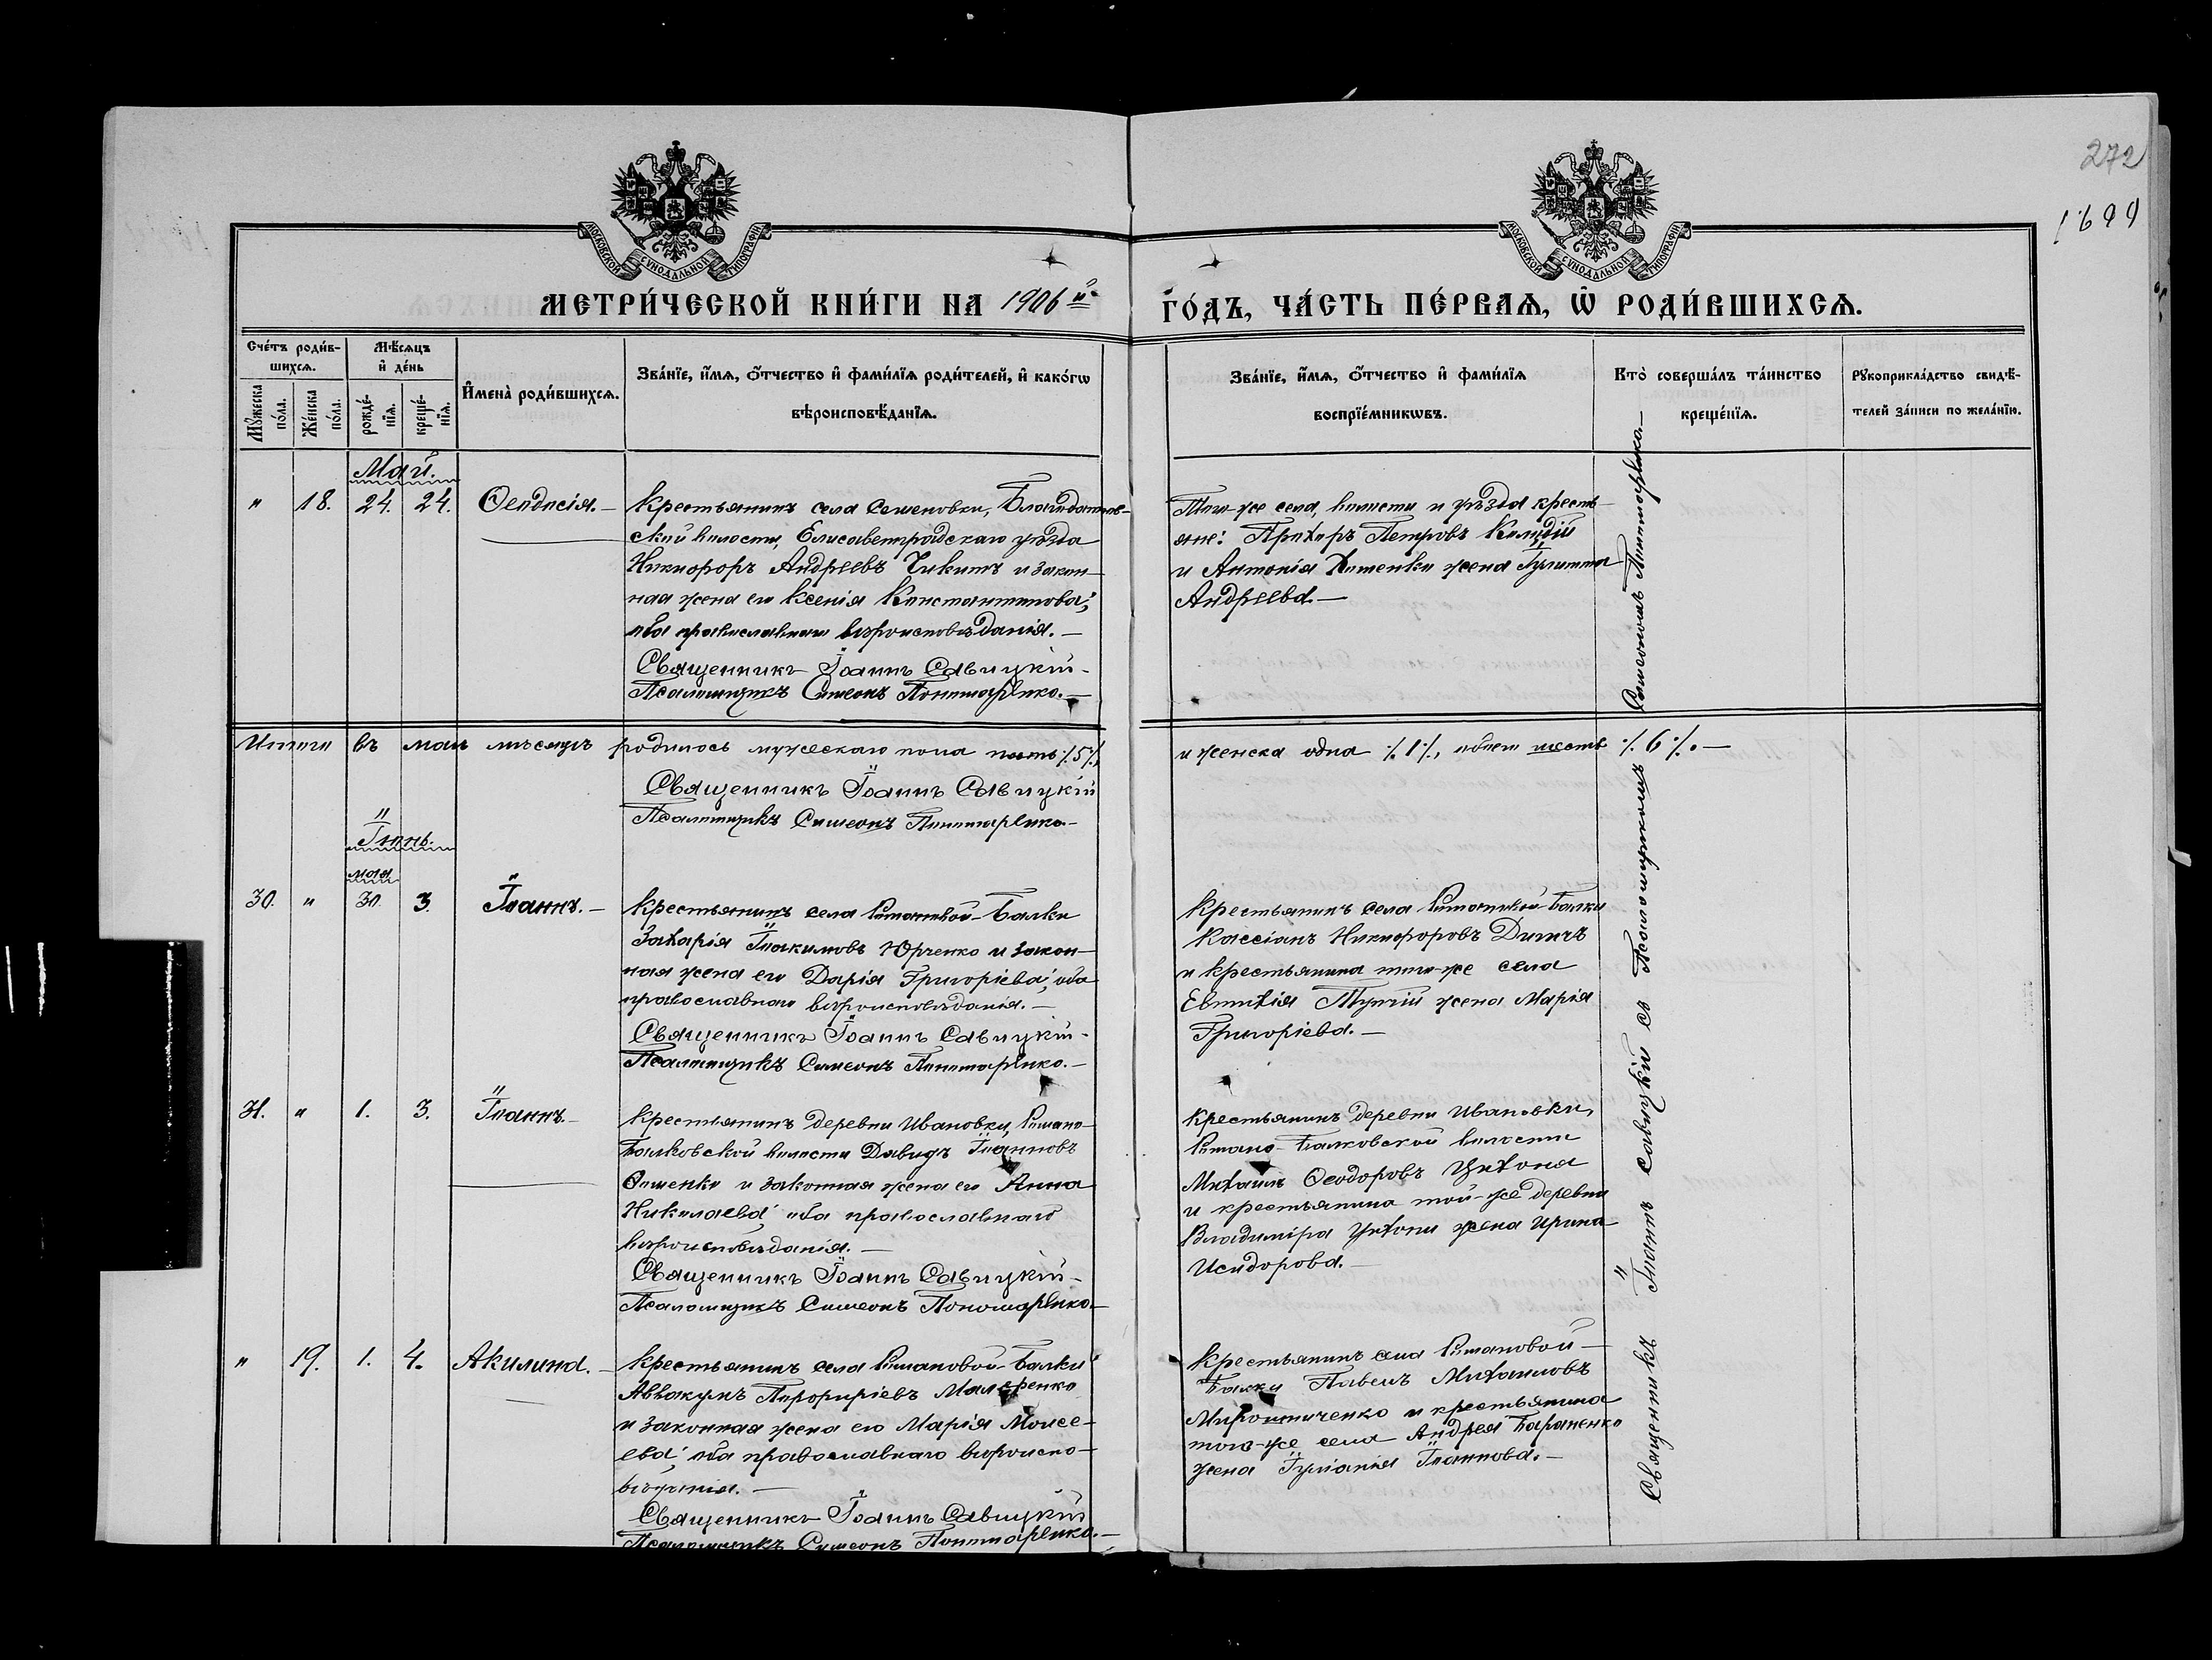 272
1699
МОСКОВСКОЙ СѴНОДАЛЬНОЙ ТИПОГРАФІИ
МОСКОВСКОЙ СѴНОДАЛЬНОЙ ТИПОГРАФІИ
МЕТРИ́ЧЕСКОЙ КНИ́ГИ НА 1906 й
ГО́ДЪ, ЧА́СТЬ ПЕ́РВАѦ, Ѡ҆ РОДИ́ВШИХСѦ.
Сче́тъ роди́в-
шихсѧ.
Мѹжеска по́ла.
Же́нска по́ла.
Мѣ́сѧцъ
и҆ де́нь
рожде́-
нїѧ.
креще́-
нїѧ.
И҆мена̀ роди́вшихсѧ.
Зва́нїе, и҆́мѧ, ѻ҆́тчество и҆ фами́лїѧ роди́телей, и҆ како́гѡ
вѣроисповѣ́данїѧ.
Зва́нїе, и҆́мѧ, ѻ҆́тчество и҆ фами́лїѧ
воспрїе́мникѡвъ.
Кто̀ соверша́лъ та́инство
креще́нїѧ.
Рѹкоприкла́дство свидѣ́-
телей за́писи по жела́нїю.
Май.
" 18. 24. 24. Ѳеодосія.—
Крестьянинъ села Семеновки, Благодатнов-
ской волости, Елисаветградскаго уѣзда
Никифоръ Андреевъ Чикитъ и закон-
ная жена его Ксенія Константинова;
оба православнаго вѣроисповѣданія.—
Священникъ Іоаннъ Савицкій-
Псаломщикъ Симеонъ Пономаренко.—
Того-же села, волости и уѣзда кресть-
яне: Прохоръ Петровъ
и Антонія жена Іулитта
Андреева.—
Итого въ маѣ мѣсяцѣ родилось мужескаго пола пять ٪5٪,
и женска одна ٪1٪, обоего шесть ٪6٪.—
Священникъ Іоаннъ Савицкій
Псаломщикъ Симеонъ Пономаренко-
Іюнь.
мая
30. " 30. 3. Іоаннъ.—
Крестьянинъ села Романовой-Балки
Захарія Іоакимовъ Юрченко и закон-
ная жена его Дарія Григоріева; оба
православнаго вѣроисповѣданія.—
Священникъ Іоаннъ Савицкій-
Псаломщикъ Симеонъ Пономаренко.—
Крестьянинъ села Романовой-Балки
Кассіанъ Никифоровъ
и крестьянина того-же села
Евтихія жена Марія
Григоріева.—
31. " 1. 3. Іоаннъ.—
Крестьянинъ деревни Ивановки, Романо-
Балковской волости Давидъ Іоанновъ
и законная жена его Анна
Николаева оба православнаго
вѣроисповѣданія.—
Священникъ Іоаннъ Савицкій-
Псаломщикъ Симеонъ Пономаренко—
Крестьянинъ деревни Ивановки,
Романо-Балковской волости
Михаилъ Ѳеодоровъ
и крестьянина той-же деревни
Владиміра жена Ирина
Исидорова.—
" 19. 1. 4. Акилина.—
Крестьянинъ села Романовой-Балки
Аввакумъ Порфиріевъ
и законная жена его Марія Моисе-
ева; оба православнаго вѣроиспо-
вѣданія.—
Священникъ Іоаннъ Савицкій
Псаломщикъ Симеонъ Пономаренко.—
Крестьянинъ села Романовой-
Балки Павелъ Михаиловъ
Мирошниченко и крестьянина
того-же села Андрея Бараненко
жена Іуліанія Іоаннова.—
Священникъ Іоаннъ Савицкій съ Псаломщикомъ Симеономъ Пономаренко.—